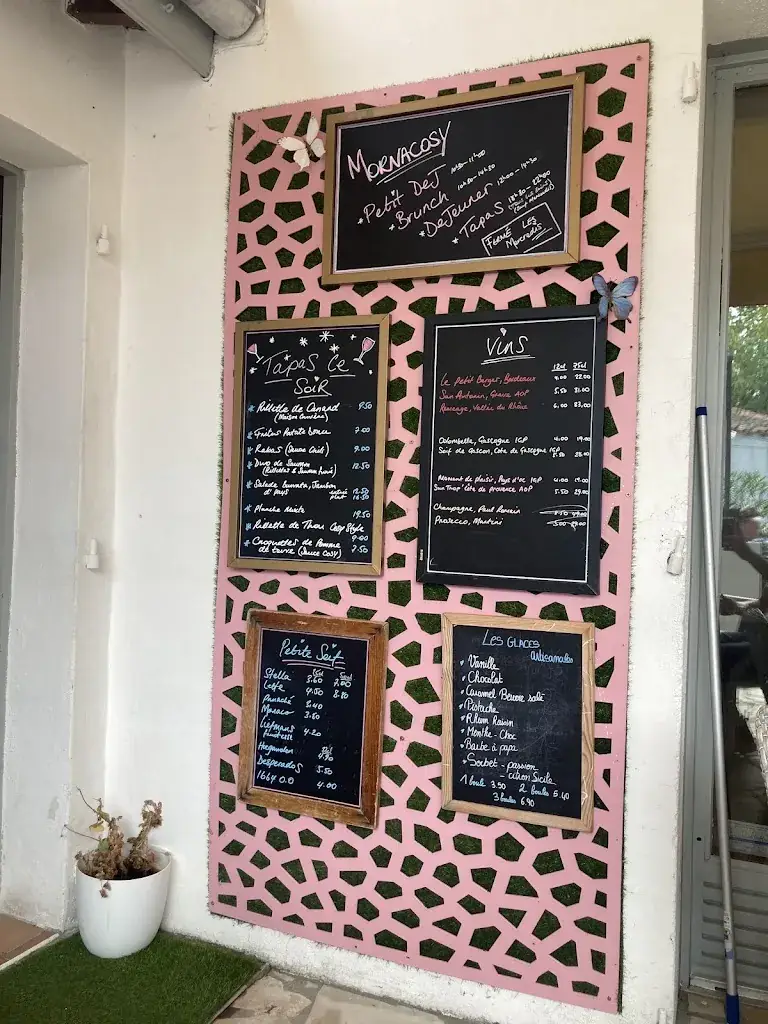 MORNACOSY
* Petit Dej
* Brunch 10h30-14h30
* Dejeuner 12h00-14h30
* Tapas 18h30-22h00
Fermé les
Mercredis
Tapas le
Soir
* Rillette de Canard 9.50
(Maison Cunière)
* Frites Patate Douce 7.00
* Rabas (Sauce Chili) 9.00
* Duo de Saumon 12.50
(Rillettes & Saumon fumé)
* Salade Burrata, Jambon
d'pays entrée 12.50
plat 16.50
* Planche Mixte 19.50
* Rillette de Thon Cosy Style
9.00
* Croquettes de Pomme
de terre (Sauce Cosy) 7.50
Vins
12cl 75cl
Le Petit Berger, Bordeaux 4.00 22.00
San Antonin, Grave AOP 5.50 31.00
Rasteau, Vallée du Rhône 6.00 33.00
Colombelle, Gascogne IGP 4.00 19.00
Seif de Gascon, Côte de Gascogne IGP
Moment de plaisir, Pays d'oc IGP 4.00 19.00
Sun Trop' Côte de provence AOP 5.50 29.00
Champagne, Paul Romain
Prosecco, Martini
Petite Soif
25cl 50cl
Stella 3.60 7.00
Leffe 4.50 8.80
Panaché 3.40
Monaco 3.60
Liefmans
Fruitesse
Hoegaarden 4.90
Desperados 5.50
1664 0.0 4.00
Les Glaces
Artisanales
* Vanille
* Chocolat
* Caramel Beurre salé
* Pistache
* Rhum Raisin
* Menthe-Choc
* Barbe à papa
* Sorbet - passion
- citron Sicile
1 boule 3.50 2 boules 5.40
3 boules 6.90